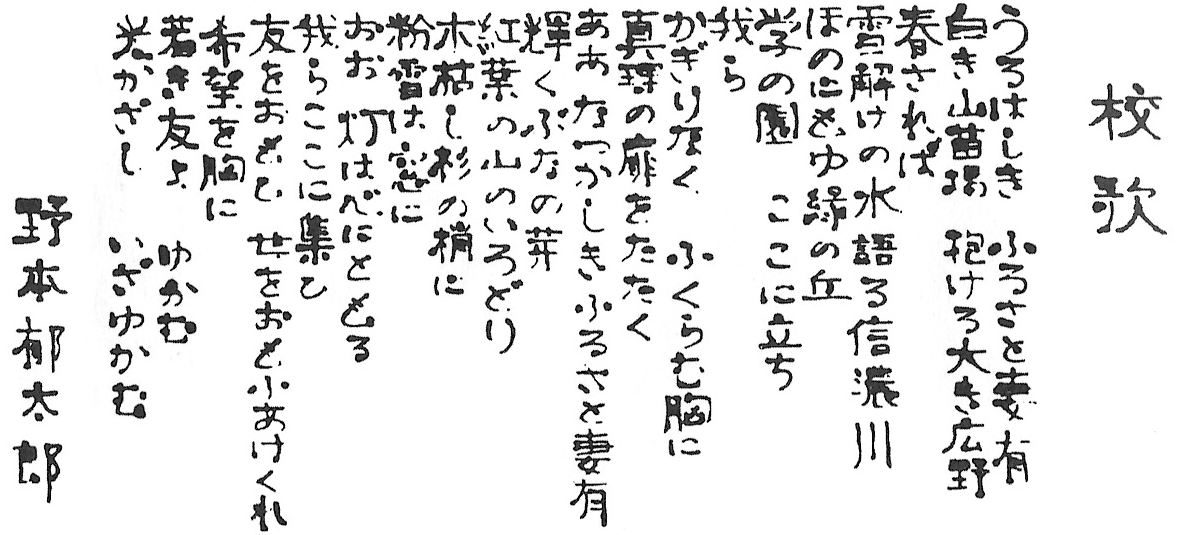 校歌
うるはしき　ふるさと妻有
白き山苗場　抱ける大き広野
春されば
雪解けの水語る信濃川
ほのにもゆ緑の丘
学の園　ここに立ち
我ら
かぎりなく　ふくらむ胸に
真理の扉をたたく
ああ　なつかしきふるさと妻有
輝くぶなの芽
紅葉の山のいろどり
木枯し杉の梢に
粉雪は窓に
おお　灯はべにともる
我らここに集ひ
友をおもひ　世をおもふあけくれ
希望を胸に
若き友よ　ゆかむ
光かざし　いざゆかむ
野本郁太郎